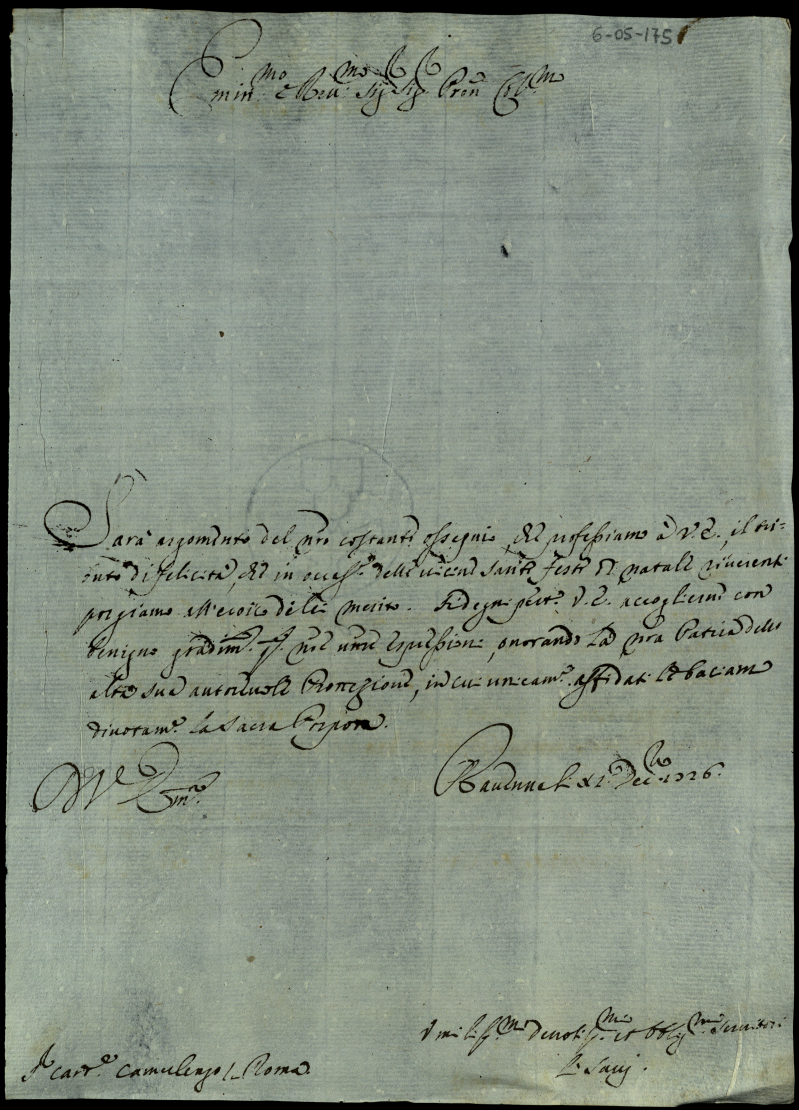 6-05-175
Emin.mo e Rev.mo Sig. Sig. Pron Col.mo
Sarà argomento del nro costante ossequio, che professiamo à V. E., il tri-
buto di felicità, che in occas.e delle vicine Sante feste di natale riverenti
porgiamo all'eroico di lei merito. Si degni per.to V. E. accoglierne con
benigno gradim.to le nre umili espressioni, onorando la nra Patria della
alta sua autorevole Protezione, in cui unicam.e affidati le baciamo
divotam.e la Sacra Porpora.
Di V. E. Em.ma
Ravenna li XI Dec.bre 1726.
Umiliss.mi Devotiss.mi et Obblig.mi Servitori
Li Savj.
Card.e Camerlengo / Roma